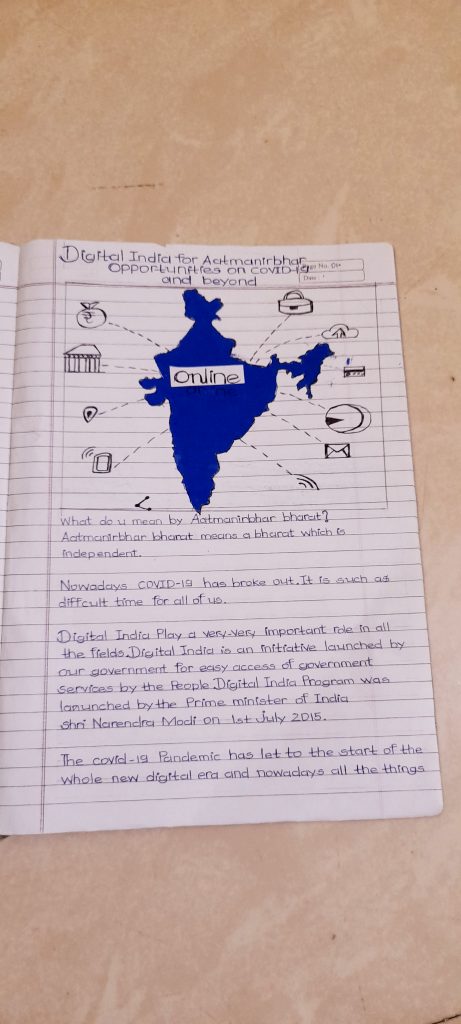 Digital India for Aatmanirbhar
Opportunities on COVID-19
and beyond
Page No. 01
Date :
Online
What do u mean by Aatmanirbhar bharat?
Aatmanirbhar bharat means a bharat which is
independent.
Nowadays COVID-19 has broke out. It is such as
diffcult time for all of us.
Digital India Play a very-very important role in all
the fields. Digital India is an initiative launched by
our government for easy access of government
services by the People. Digital India Program was
lanunched by the Prime minister of India
shri Narendra Modi on 1st July 2015.
The covid-19 Pandemic has let to the start of the
whole new digital era and nowadays all the things